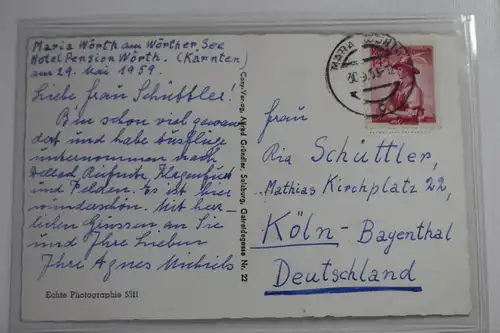 Maria Wörth am Wörther See
Hotel Pension Wörth. (Kärnten)
am 29. Mai 1959.
Liebe Frau Schüttler!
Bin schon viel gewan
dert und habe Ausflüge
unternommen nach
Klagenfurt
und Velden. Es ist hier
wunderschön. Mit herz
lichen Grüssen an Sie
und Ihre Lieben
Ihre Agnes
Echte Photographie 5311
Cosy-Verlag, Alfred Gründler, Salzburg, Getreidegasse Nr. 22
MARIA WÖRTH
Frau
Ria Schüttler,
Mathias Kirchplatz 22,
Köln - Bayenthal
Deutschland